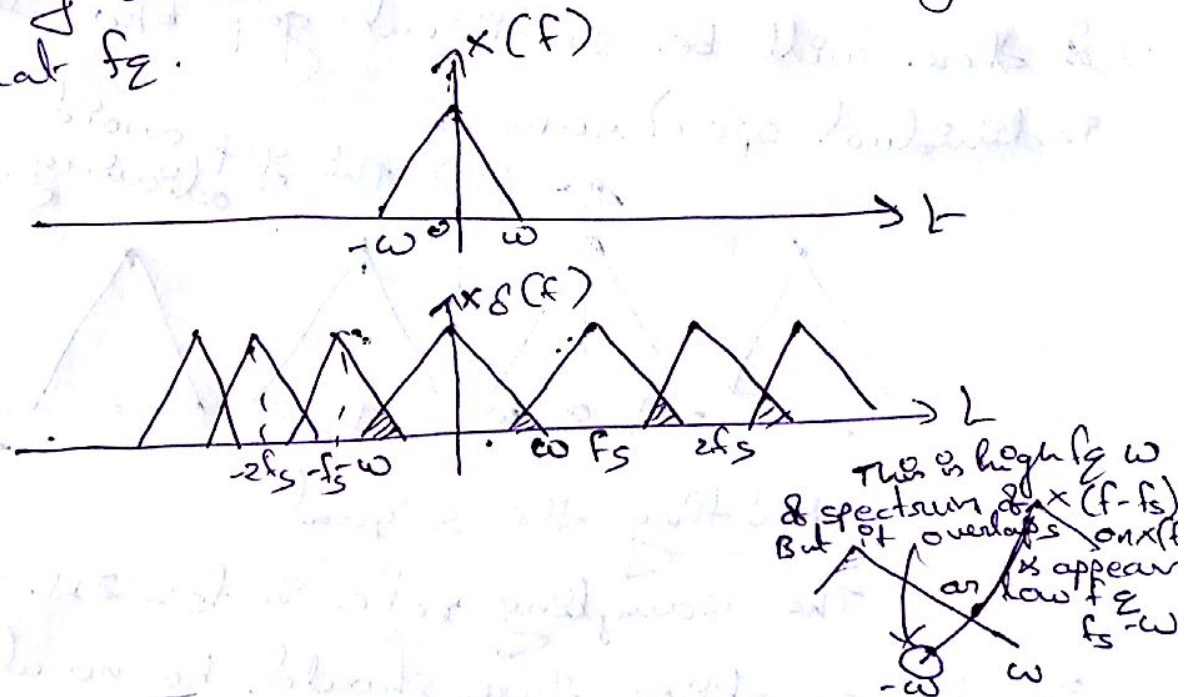 at fq.
x(f)
-ω 0 ω f
xδ(f)
-2fs -fs -ω ω fs 2fs f
This is high fq ω
of spectrum of x(f-fs)
But it overlaps on x(f
& appear
as low fq
fs-ω
-ω ω